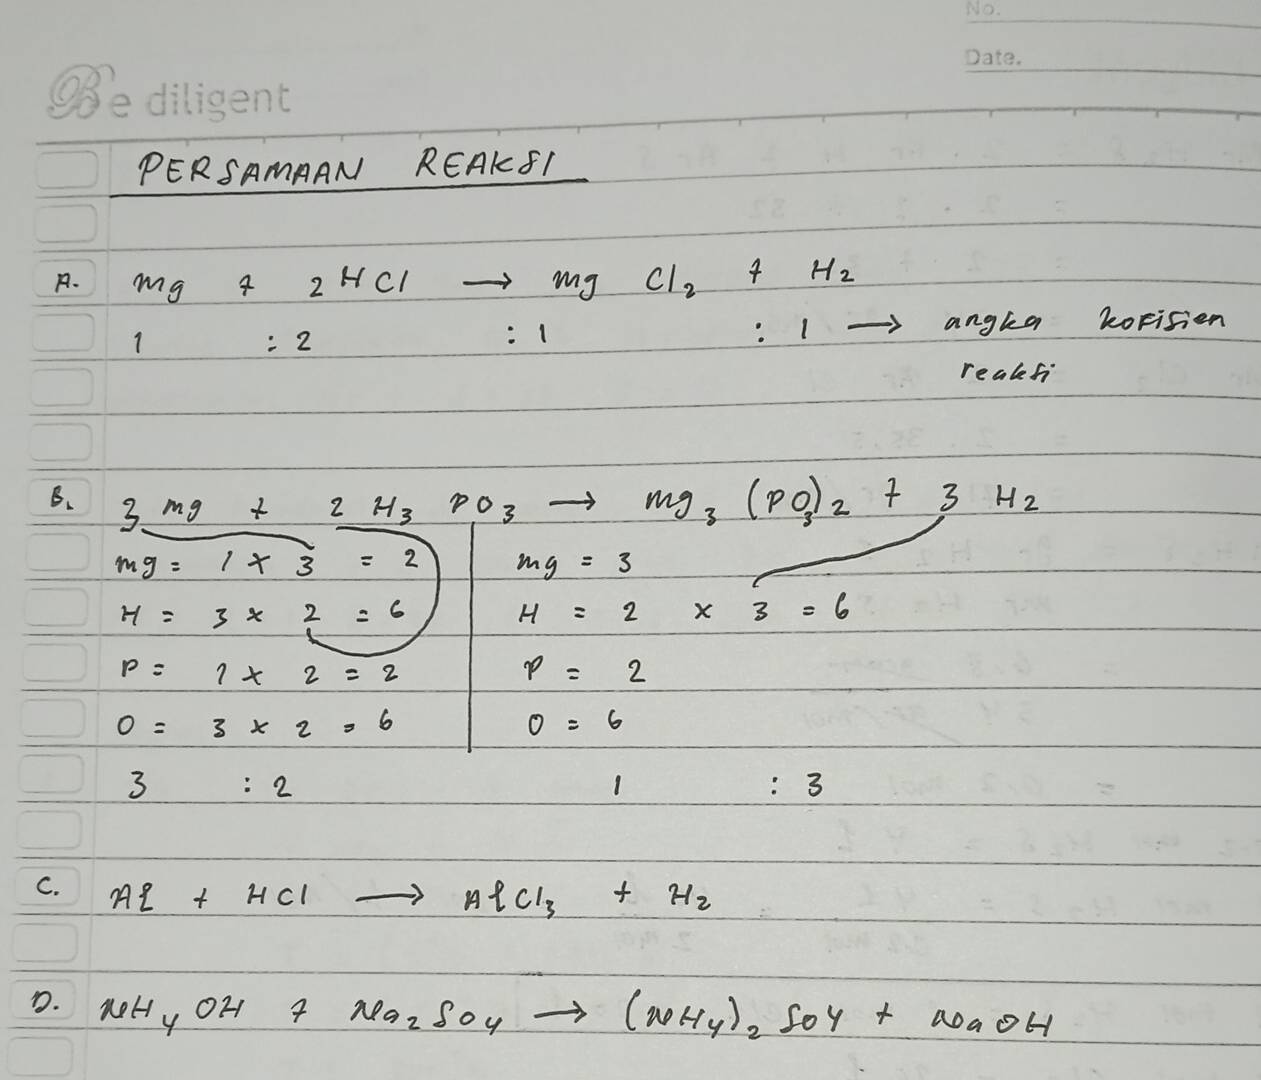 No.
Date.
Be diligent
PERSAMAAN REAKSI
A. Mg + 2 HCl → Mg Cl₂ + H₂
1 : 2 : 1 : 1 → angka kofisien
reaksi
B. 3 Mg + 2 H₃ PO₃ → Mg₃ (PO₃)₂ + 3 H₂
Mg = 1 x 3 = 2 Mg = 3
H = 3 x 2 = 6 H = 2 x 3 = 6
P = 1 x 2 = 2 P = 2
O = 3 x 2 = 6 O = 6
3 : 2 1 : 3
C. Al + HCl → AlCl₃ + H₂
D. NH₄ OH + Na₂ SO₄ → (NH₄)₂ SO4 + NaOH